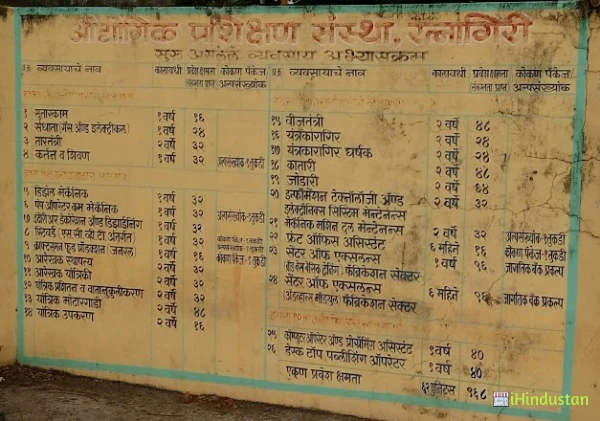 औद्योगिक प्रशिक्षण संस्था, रत्नागिरी
सुरु असलेले व्यवसाय अभ्यासक्रम
अ.क्र व्यवसायाचे नाव कालावधी प्रवेश क्षमता कोकण पॅकेज
अल्पसंख्यांक
१ सुतारकाम १ वर्ष १६
२ संधाता (गॅस अँण्ड इलेक्ट्रीकल) १ वर्ष २४
३ तारतंत्री २ वर्षे २४
४ कर्तन व शिवण १ वर्ष ३२ अल्पसंख्यांक-१तुकडी
५ डिझेल मेकॅनिक १ वर्ष ३२
६ पंप ऑपरेटर कम मेकॅनिक १ वर्ष
७ इंटेरीअर डेकोरेशन अँण्ड डिझाईनिंग १ वर्ष ३२ अल्पसंख्यांक-१तुकडी
८ स्टिवर्ड (एस सी व्ही टी. अंतर्गत) १ वर्ष ३२ कोकण पॅकेज-१तुकडी
९ क्राफ्टसमन फूड प्रॉडक्शन (जनरल) १ वर्ष १६ कोकण पॅकेज-१तुकडी
१० आरेखक स्थापत्य २ वर्षे ३२
११ आरेखक यांत्रिकी २ वर्षे १६
१२ यांत्रिक प्रशितन व वातानुकूलीकरण २ वर्षे ३२
१३ यांत्रिक मोटारगाडी २ वर्षे ४८
१४ यांत्रिक उपकरण २ वर्षे १६
अ.क्र व्यवसायाचे नाव कालावधी प्रवेश क्षमता कोकण पॅकेज
अल्पसंख्यांक
१५ वीजतंत्री २ वर्षे ४८
१६ यंत्रकारागिर २ वर्षे २४
१७ यंत्रकारागिर घर्षक २ वर्षे ३२
१८ कातारी २ वर्षे ४८
१९ जोडारी २ वर्षे ६४
२० इन्फॉर्मेशन टेक्नॉलॉजी अँण्ड २ वर्षे ३२
इलेक्ट्रॉनिक्स सिस्टिम मेन्टेनन्स
२१ मेकॅनिक मशिन टूल मेन्टेनन्स २ वर्षे ३२ अल्पसंख्यांक-१तुकडी
२२ फ्रंट ऑफिस असिस्टंट ६ महिने १६ कोकण पॅकेज-१तुकडी
२३ सेंटर ऑफ एक्सलन्स १ वर्ष ९६ जागतिक बँक प्रकल्प
ब्रॉड बेस बेसिक ट्रेनिंग फॅब्रिकेशन सेक्टर
२४ सेंटर ऑफ एक्सलन्स ६ महिने ९६ जागतिक बँक प्रकल्प
(अँडव्हान्स मॉड्युल) फॅब्रिकेशन सेक्टर
२५ कॉम्प्युटर ऑपरेटर अँण्ड प्रोग्रॅमिंग असिस्टंट १ वर्ष ४०
२६ डेस्क टॉप पब्लीशिंग ऑपरेटर १ वर्ष ४०
एकूण प्रवेश क्षमता ९६८
iHindustan